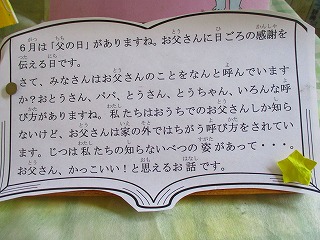 6月は「父の日」がありますね。お父さんに日ごろの感謝を
伝える日です。
さて、みなさんはお父さんのことをなんと呼んでいます
か?おとうさん、パパ、とうさん、とうちゃん、いろんな呼
び方がありますね。私たちはおうちでのお父さんしか知ら
ないけど、お父さんは家の外ではちがう呼び方をされてい
ます。じつは私たちの知らないべつの姿があって・・・。
お父さん、かっこいい!と思えるお話です。